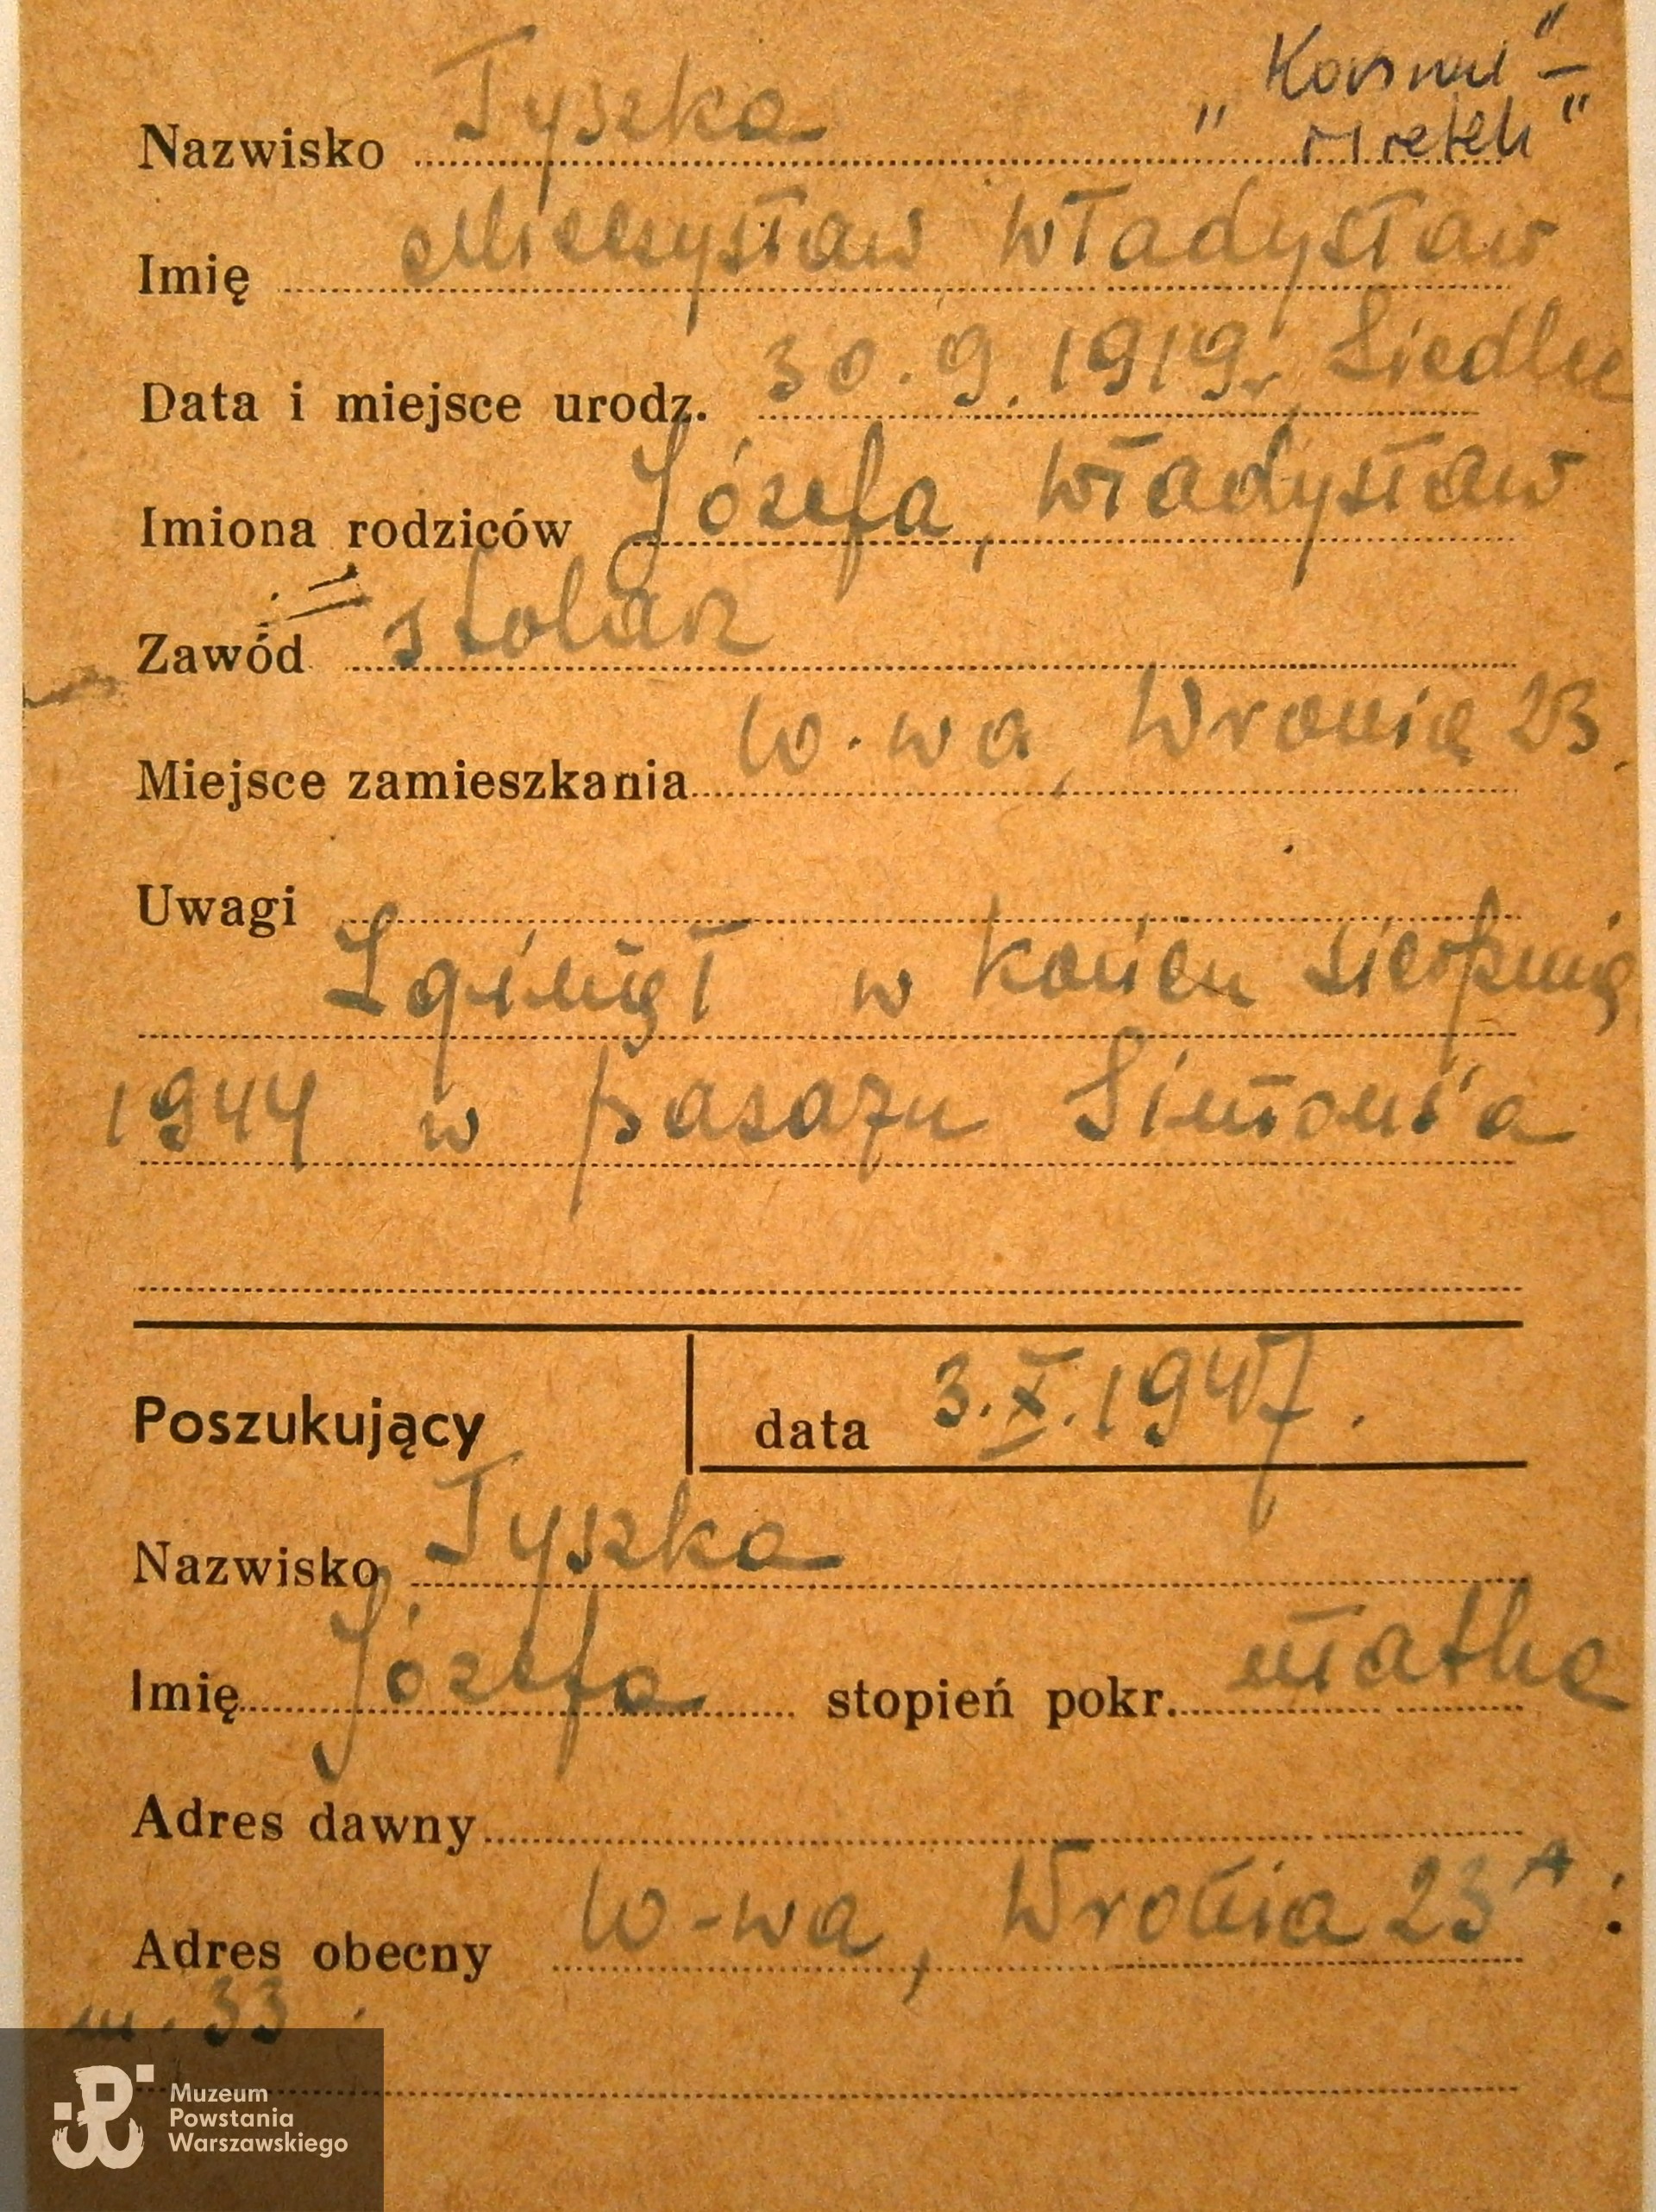 „Korsarz" –
Nazwisko Tyszka „Mietek"
Imię Mieczysław Władysław
Data i miejsce urodz. 30.9.1919r. Siedlce
Imiona rodziców Józefa, Władysław
Zawód stolarz
Miejsce zamieszkania W.wa, Wronia 23.
Uwagi
Zginął w końcu sierpnia
1944 w pasażu Simons'a
Poszukujący data 3.X.1947.
Nazwisko Tyszka
Imię Józefa stopień pokr. matka
Adres dawny
Adres obecny W-wa, Wronia 23A
m. 33.
Muzeum
Powstania
Warszawskiego